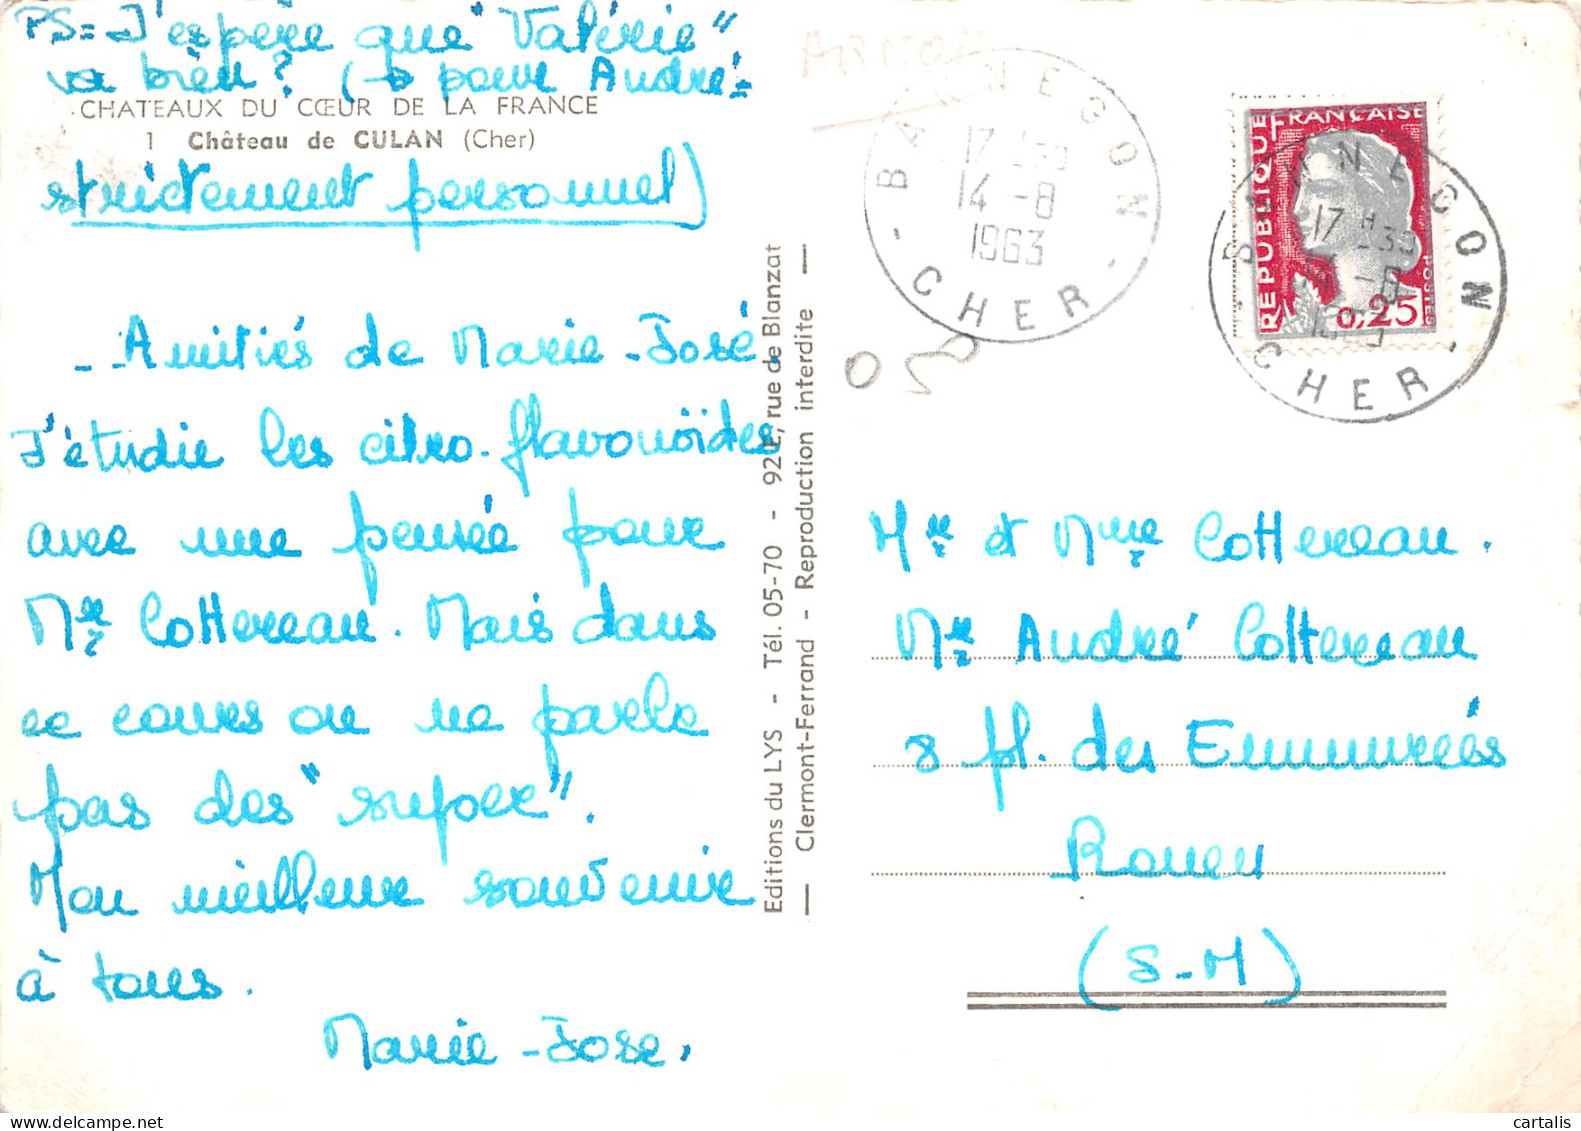 PS=J'espère que "Valérie"
va bien ? (→ pour André=
CHATEAUX DU CŒUR DE LA FRANCE
1 Château de CULAN (Cher)
strictement personnel)
- Amitiés de Marie-José.
J'étudie les citro-flavonoïdes
avec une pensée pour
Mr Cottereau. Mais dans
ce cours on ne parle
pas des "super".
Mon meilleur souvenir
à tous.
Marie-José.
Editions du LYS - Tél. 05-70 - 92 E, rue de Blanzat
— Clermont-Ferrand - Reproduction interdite —
BANNEGON
17 H 30
14-8
1963
- CHER -
RÉPUBLIQUE FRANÇAISE
POSTES
0,25
BANNEGON
17 H 30
14-8
1963
- CHER -
Mr et Mme Cottereau.
Mr André Cottereau
8 pl. des Emmurées
Rouen
(S-M)
cartalis